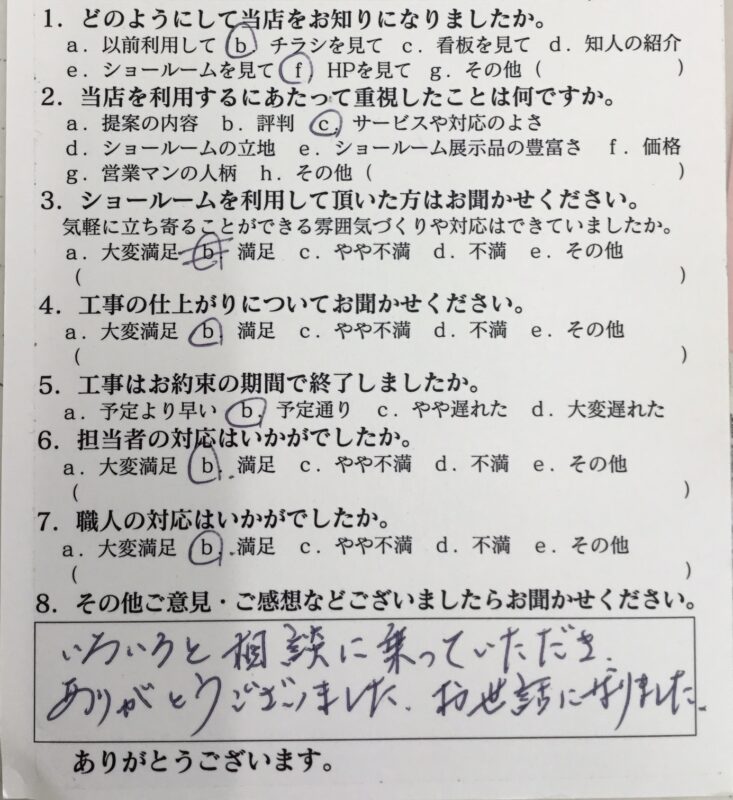 1．どのようにして当店をお知りになりましたか。
a．以前利用して b．チラシを見て c．看板を見て d．知人の紹介
e．ショールームを見て f．HPを見て g．その他（ ）
2．当店を利用するにあたって重視したことは何ですか。
a．提案の内容 b．評判 c．サービスや対応のよさ
d．ショールームの立地 e．ショールーム展示品の豊富さ f．価格
g．営業マンの人柄 h．その他（ ）
3．ショールームを利用して頂いた方はお聞かせください。
気軽に立ち寄ることができる雰囲気づくりや対応はできていましたか。
a．大変満足 b．満足 c．やや不満 d．不満 e．その他
（ ）
4．工事の仕上がりについてお聞かせください。
a．大変満足 b．満足 c．やや不満 d．不満 e．その他
（ ）
5．工事はお約束の期間で終了しましたか。
a．予定より早い b．予定通り c．やや遅れた d．大変遅れた
6．担当者の対応はいかがでしたか。
a．大変満足 b．満足 c．やや不満 d．不満 e．その他
（ ）
7．職人の対応はいかがでしたか。
a．大変満足 b．満足 c．やや不満 d．不満 e．その他
（ ）
8．その他ご意見・ご感想などございましたらお聞かせください。
いろいろと相談に乗っていただき、
ありがとうございました。お世話になりました。
ありがとうございます。